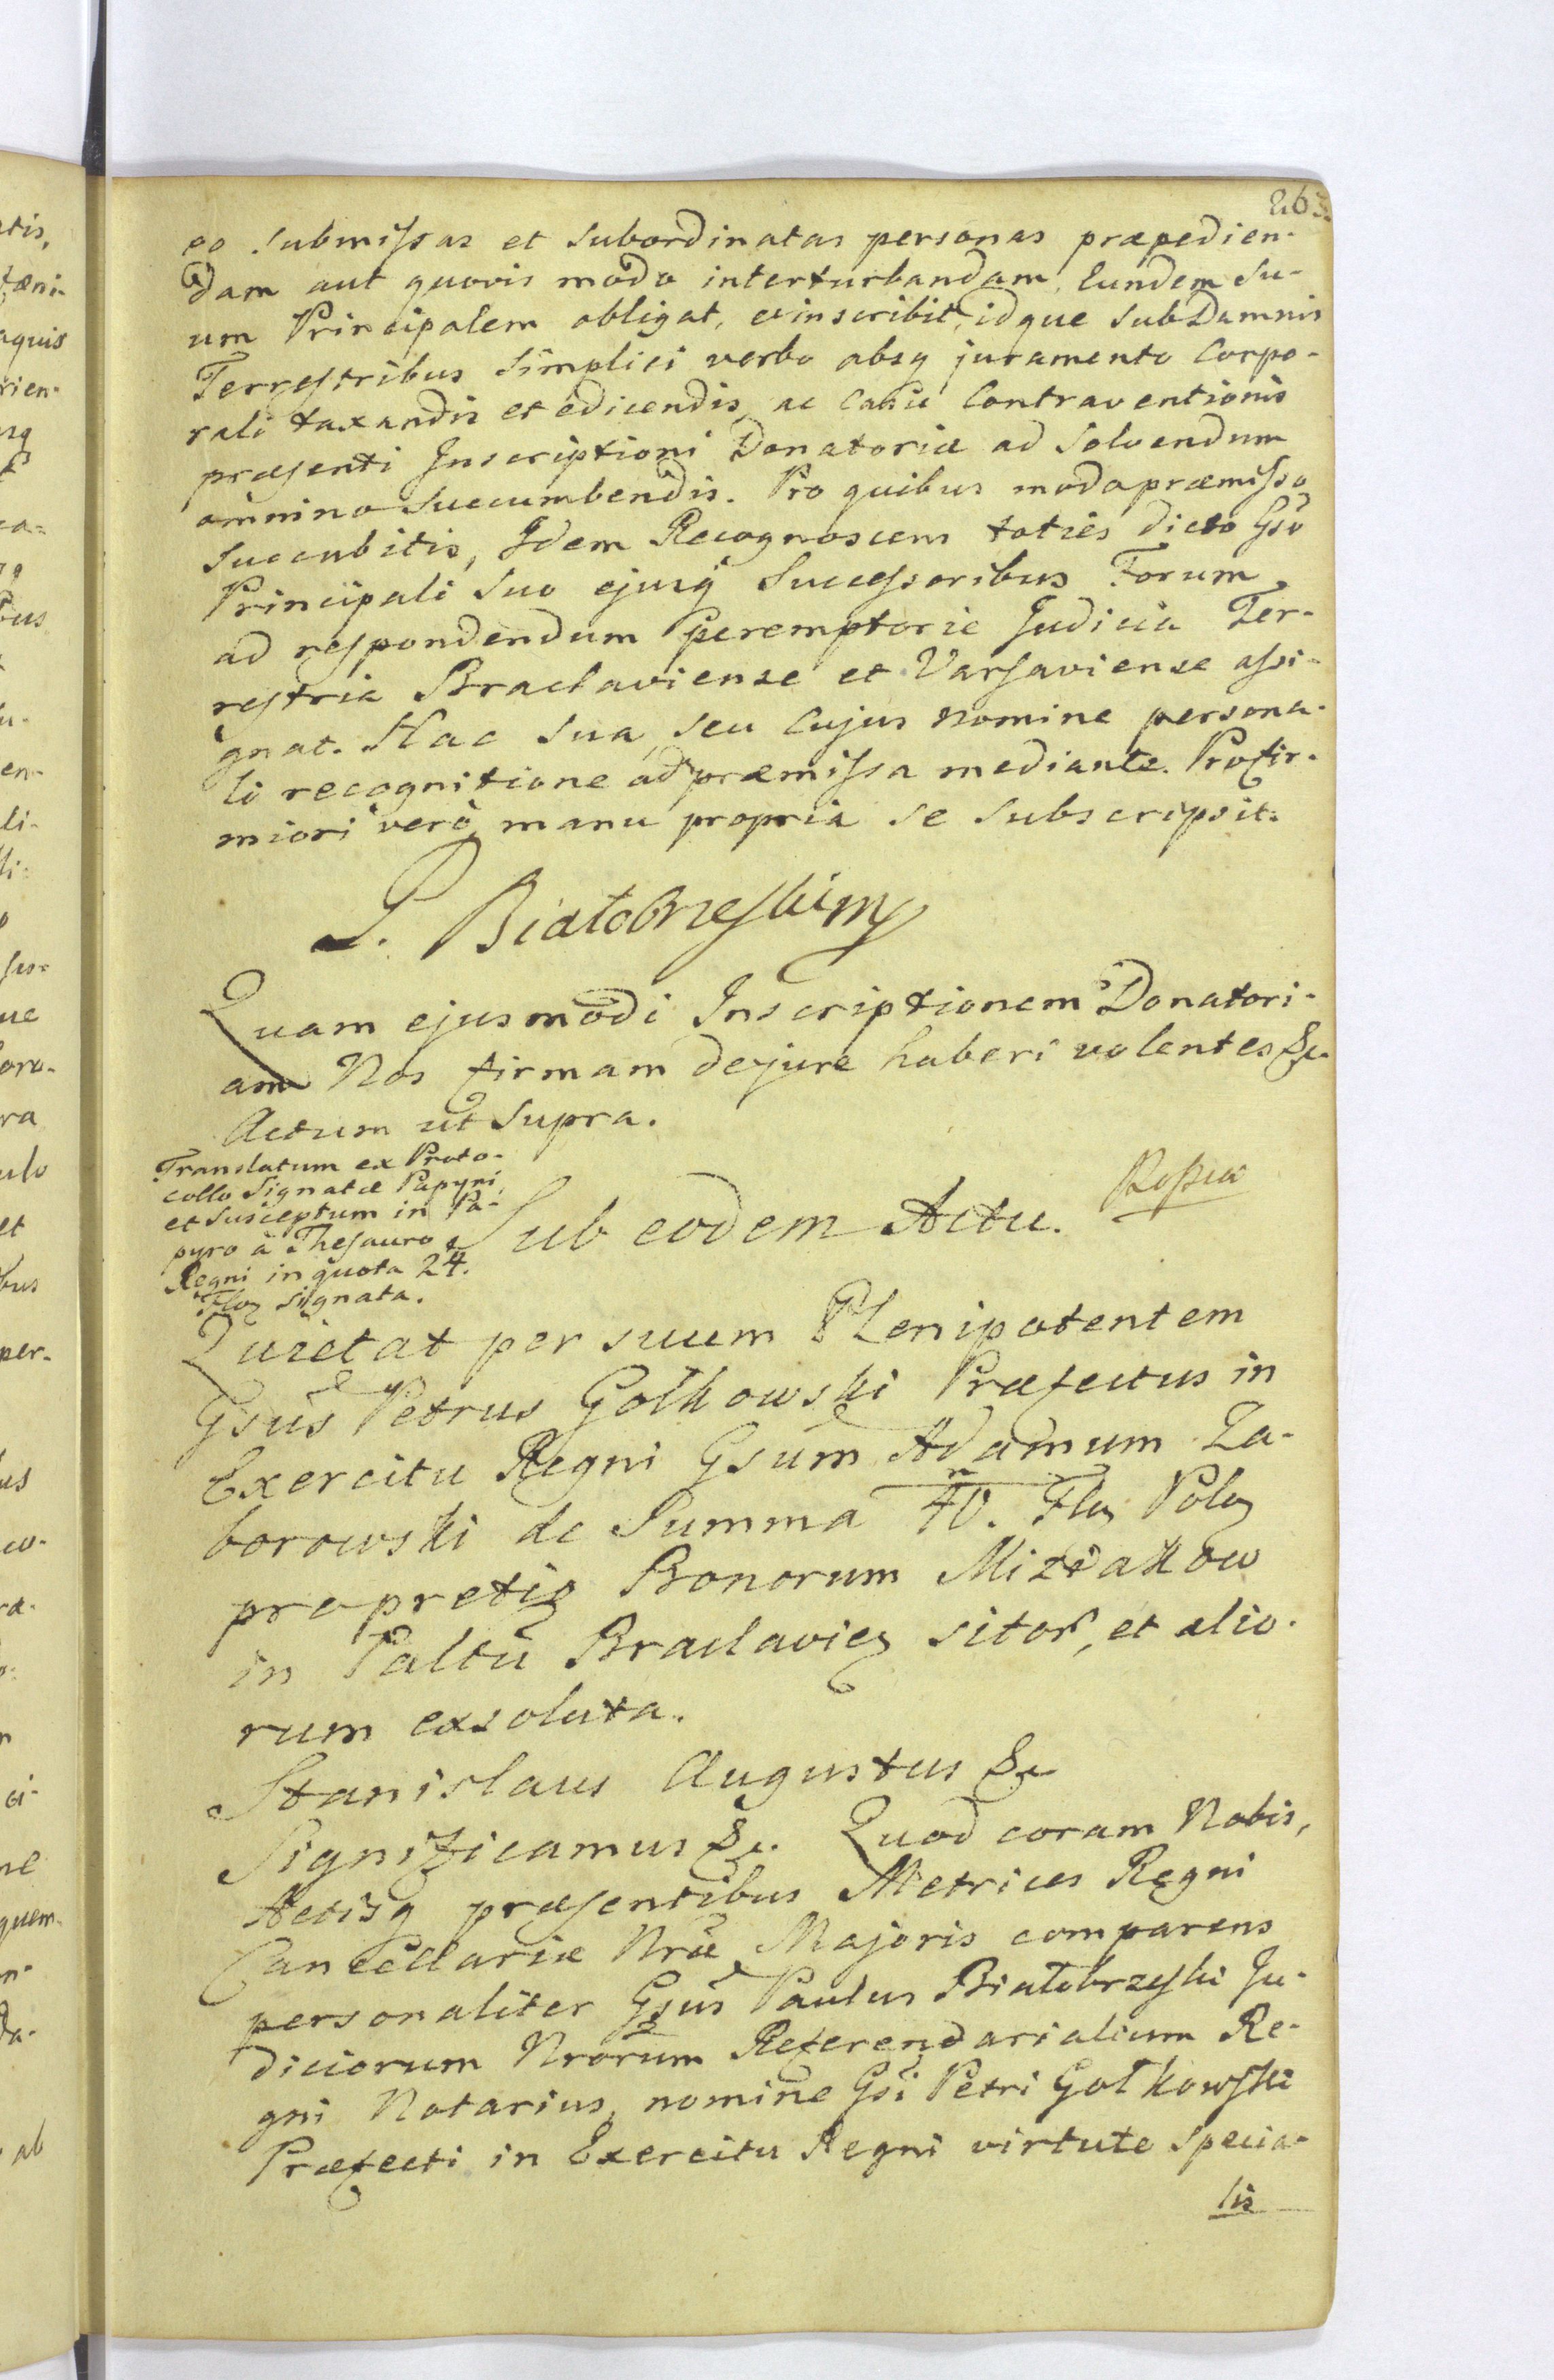 263.
eo submissas et subordinatas personas præpedien-
dam aut quovis modo interturbandam, Eundem Su-
um Principalem obligat, et inscribit, idque sub Damnis
Terrestribus simplici verbo absq juramento Corpo-
rali taxandis et edicendis, ac Casu Contraventionis
præsenti Inscriptioni Donatoriæ ad solvendum
omnino succumbendis. Pro quibus modo præmisso
succubitis, Idem Recognoscens toties dicto Gso
Principali suo ejusq Successoribus Forum
ad respondendum peremptorie Judicia Ter-
restria Braclaviense et Varsaviense assi-
gnat. Hac sua, seu cujus nomine persona-
li recognitione ad præmissa mediante. Pro fir-
miori verò manu propria se subscripsit.
P. Białobrzeski mp
Quam ejusmodi Inscriptionem Donatori-
am Nos firmam dejure haberi volentes &c.
Actum ut supra.
Translatum ex Proto-
collo Signatæ Papyri,
et susceptum in Pa-
pyro à Thesauro
Regni in quota 24.
Flor signata.
Sub eodem Actu.
Quietat per suum Plenipotentem
Gsus Petrus Gołkowski Præfectus in
Exercitu Regni Gsum Adamum Za-
borowski de Summa 40. Flor Pol
pro pretio Bonorum Miziakow
in Paltu Braclavien sitor, et alio-
rum exsoluta.
Stanislaus Augustus &c
Significamus &c. Quod coram Nobis,
Actisq præsentibus Metrices Regni
Cancellariæ Nræ Majoris comparens
personaliter Gsus Paulus Białobrzeski Ju-
diciorum Nrorum Referendarialium Re-
gni Notarius, nomine Gsi Petri Gołkowski
Præfecti in Exercitu Regni virtute specia-
lis